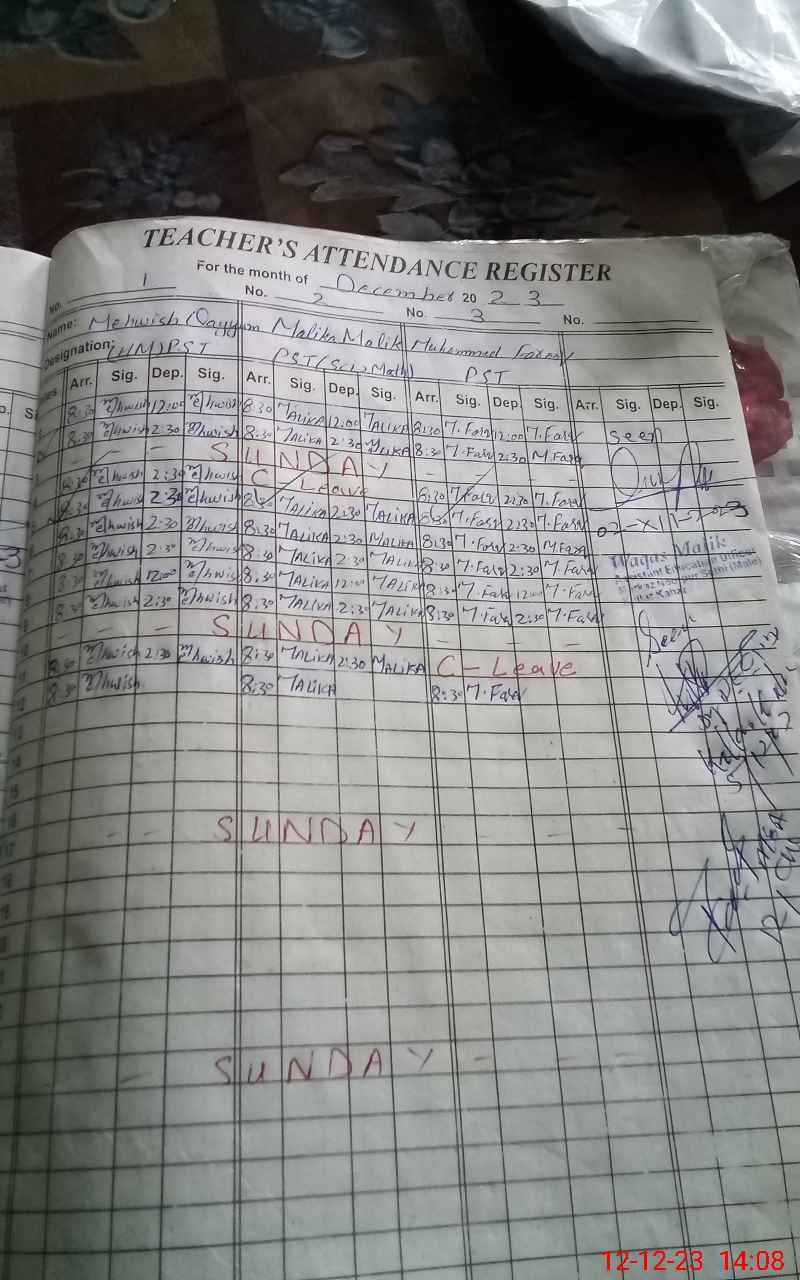 TEACHER'S ATTENDANCE REGISTER
For the month of December 20 23
No. 1 No. 2 No. 3 No.
Name: Mehwish Qayyum Malika Malik Muhammad Farooq
Designation: (HM) PST PST (Sci, Math) PST
Arr. Sig. Dep. Sig. Arr. Sig. Dep. Sig. Arr. Sig. Dep. Sig. Arr. Sig. Dep. Sig.
8:30 Mehwish 12:00 Mehwish 8:30 MALIKA 12:00 MALIKA 8:30 M. Farq 12:00 M. Farq Seen
8:30 Mehwish 2:30 Mehwish 8:30 MALIKA 2:30 MALIKA 8:30 M. Farq 2:30 M. Farq
- - - SUNDAY - - - -
8:30 Mehwish 2:30 Mehwish C - Leave 8:30 M. Farq 2:30 M. Farq
8:30 Mehwish 2:30 Mehwish 8:30 MALIKA 2:30 MALIKA 8:30 M. Farq 2:30 M. Farq 02-XII-2023
8:30 Mehwish 2:30 Mehwish 8:30 MALIKA 2:30 MALIKA 8:30 M. Farq 2:30 M. Farq Waqas Malik
8:30 Mehwish 2:30 Mehwish 8:30 MALIKA 2:30 MALIKA 8:30 M. Farq 2:30 M. Farq Assistant Education Officer
8:30 Mehwish 12:00 Mehwish 8:30 MALIKA 12:00 MALIKA 8:30 M. Farq 12:00 M. Farq
8:30 Mehwish 2:30 Mehwish 8:30 MALIKA 2:30 MALIKA 8:30 M. Farq 2:30 M. Farq
- - - SUNDAY - - - - Seen
8:30 Mehwish 2:30 Mehwish 8:30 MALIKA 2:30 MALIKA C - Leave
8:30 Mehwish 8:30 MALIKA 8:30 M. Farq
- - SUNDAY - - -
- SUNDAY - - -
12-12-23 14:08